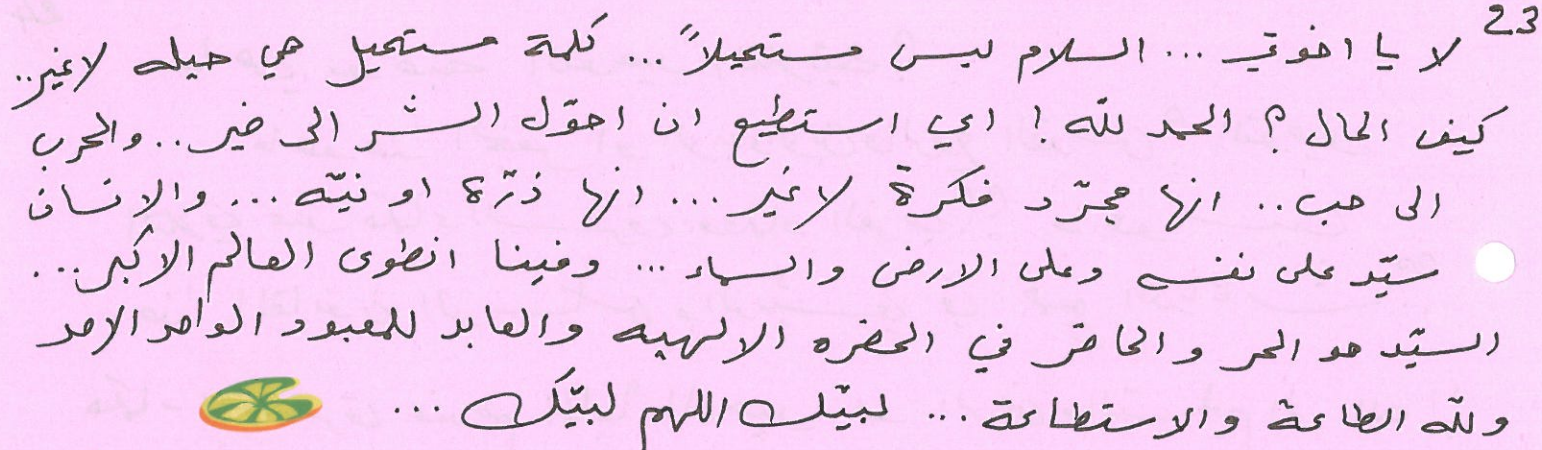 23
لا يا اخوتي ... السلام ليس مستحيلاً ... كلمة مستحيل هي حيله لاغير..
كيف الحال ؟ الحمد لله ! اي استطيع ان احوّل الشر الى خير .. والحرب
الى حب .. انها مجرّد فكرة لاغير ... انها ذرّة او نيّه ... والانسان
سيّد على نفسه وعلى الارض والسماء ... وفينا انطوى العالم الاكبر ...
السيّد هو الحر والحاضر في الحضره الالهيه والعابد للمعبود الواحد الاحد
ولله الطاعة والاستطاعة ... لبيّك اللهم لبيّك ...